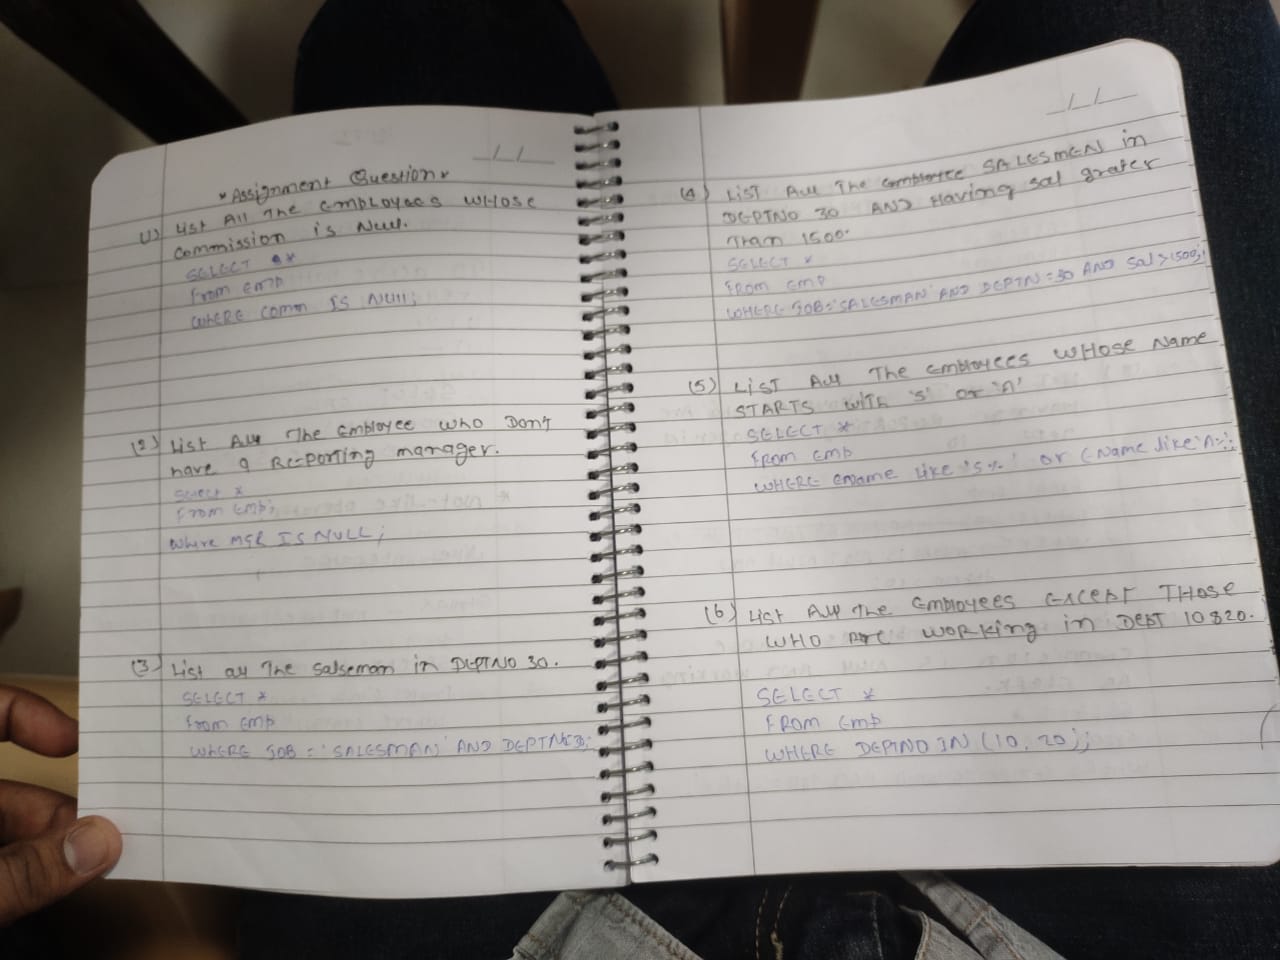 * Assignment Question *
(1) List All The Employees WHOSE
Commission is Null.
SELECT *
From Emp
WHERE Comm IS NUll;
(2) List All The Employee who Don't
have a Reporting manager.
Select *
From Emp;
Where MGR IS NULL;
(3) List all The Salseman in DEPTNO 30.
SELECT *
From Emp
WHERE JOB = 'SALESMAN' AND
(4) LIST All The Employee SALESMEN in
DEPTNO 30 AND Having Sal grater
Than 1500.
SELECT *
FROM Emp
WHERE JOB='SALESMAN' AND DEPTN=30 AND Sal >1500;
(5) LIST All The Employees WHOSE Name
STARTS WITh 'S' or 'A'
SELECT *
From Emp
WHERE ename like 'S%' or Ename like
(6) List All The Employees Except THose
WHO Are WORKing in DEPT 10 &20.
SELECT *
FROM Emp
WHERE DEPTNO IN (10, 20);